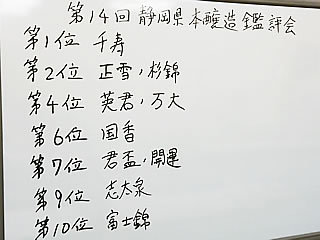 第14回 静岡県本醸造鑑評会
第1位 千寿
第2位 正雪,杉錦
第4位 英君,万大
第6位 国香
第7位 君盃,開運
第9位 志太泉
第10位 富士錦